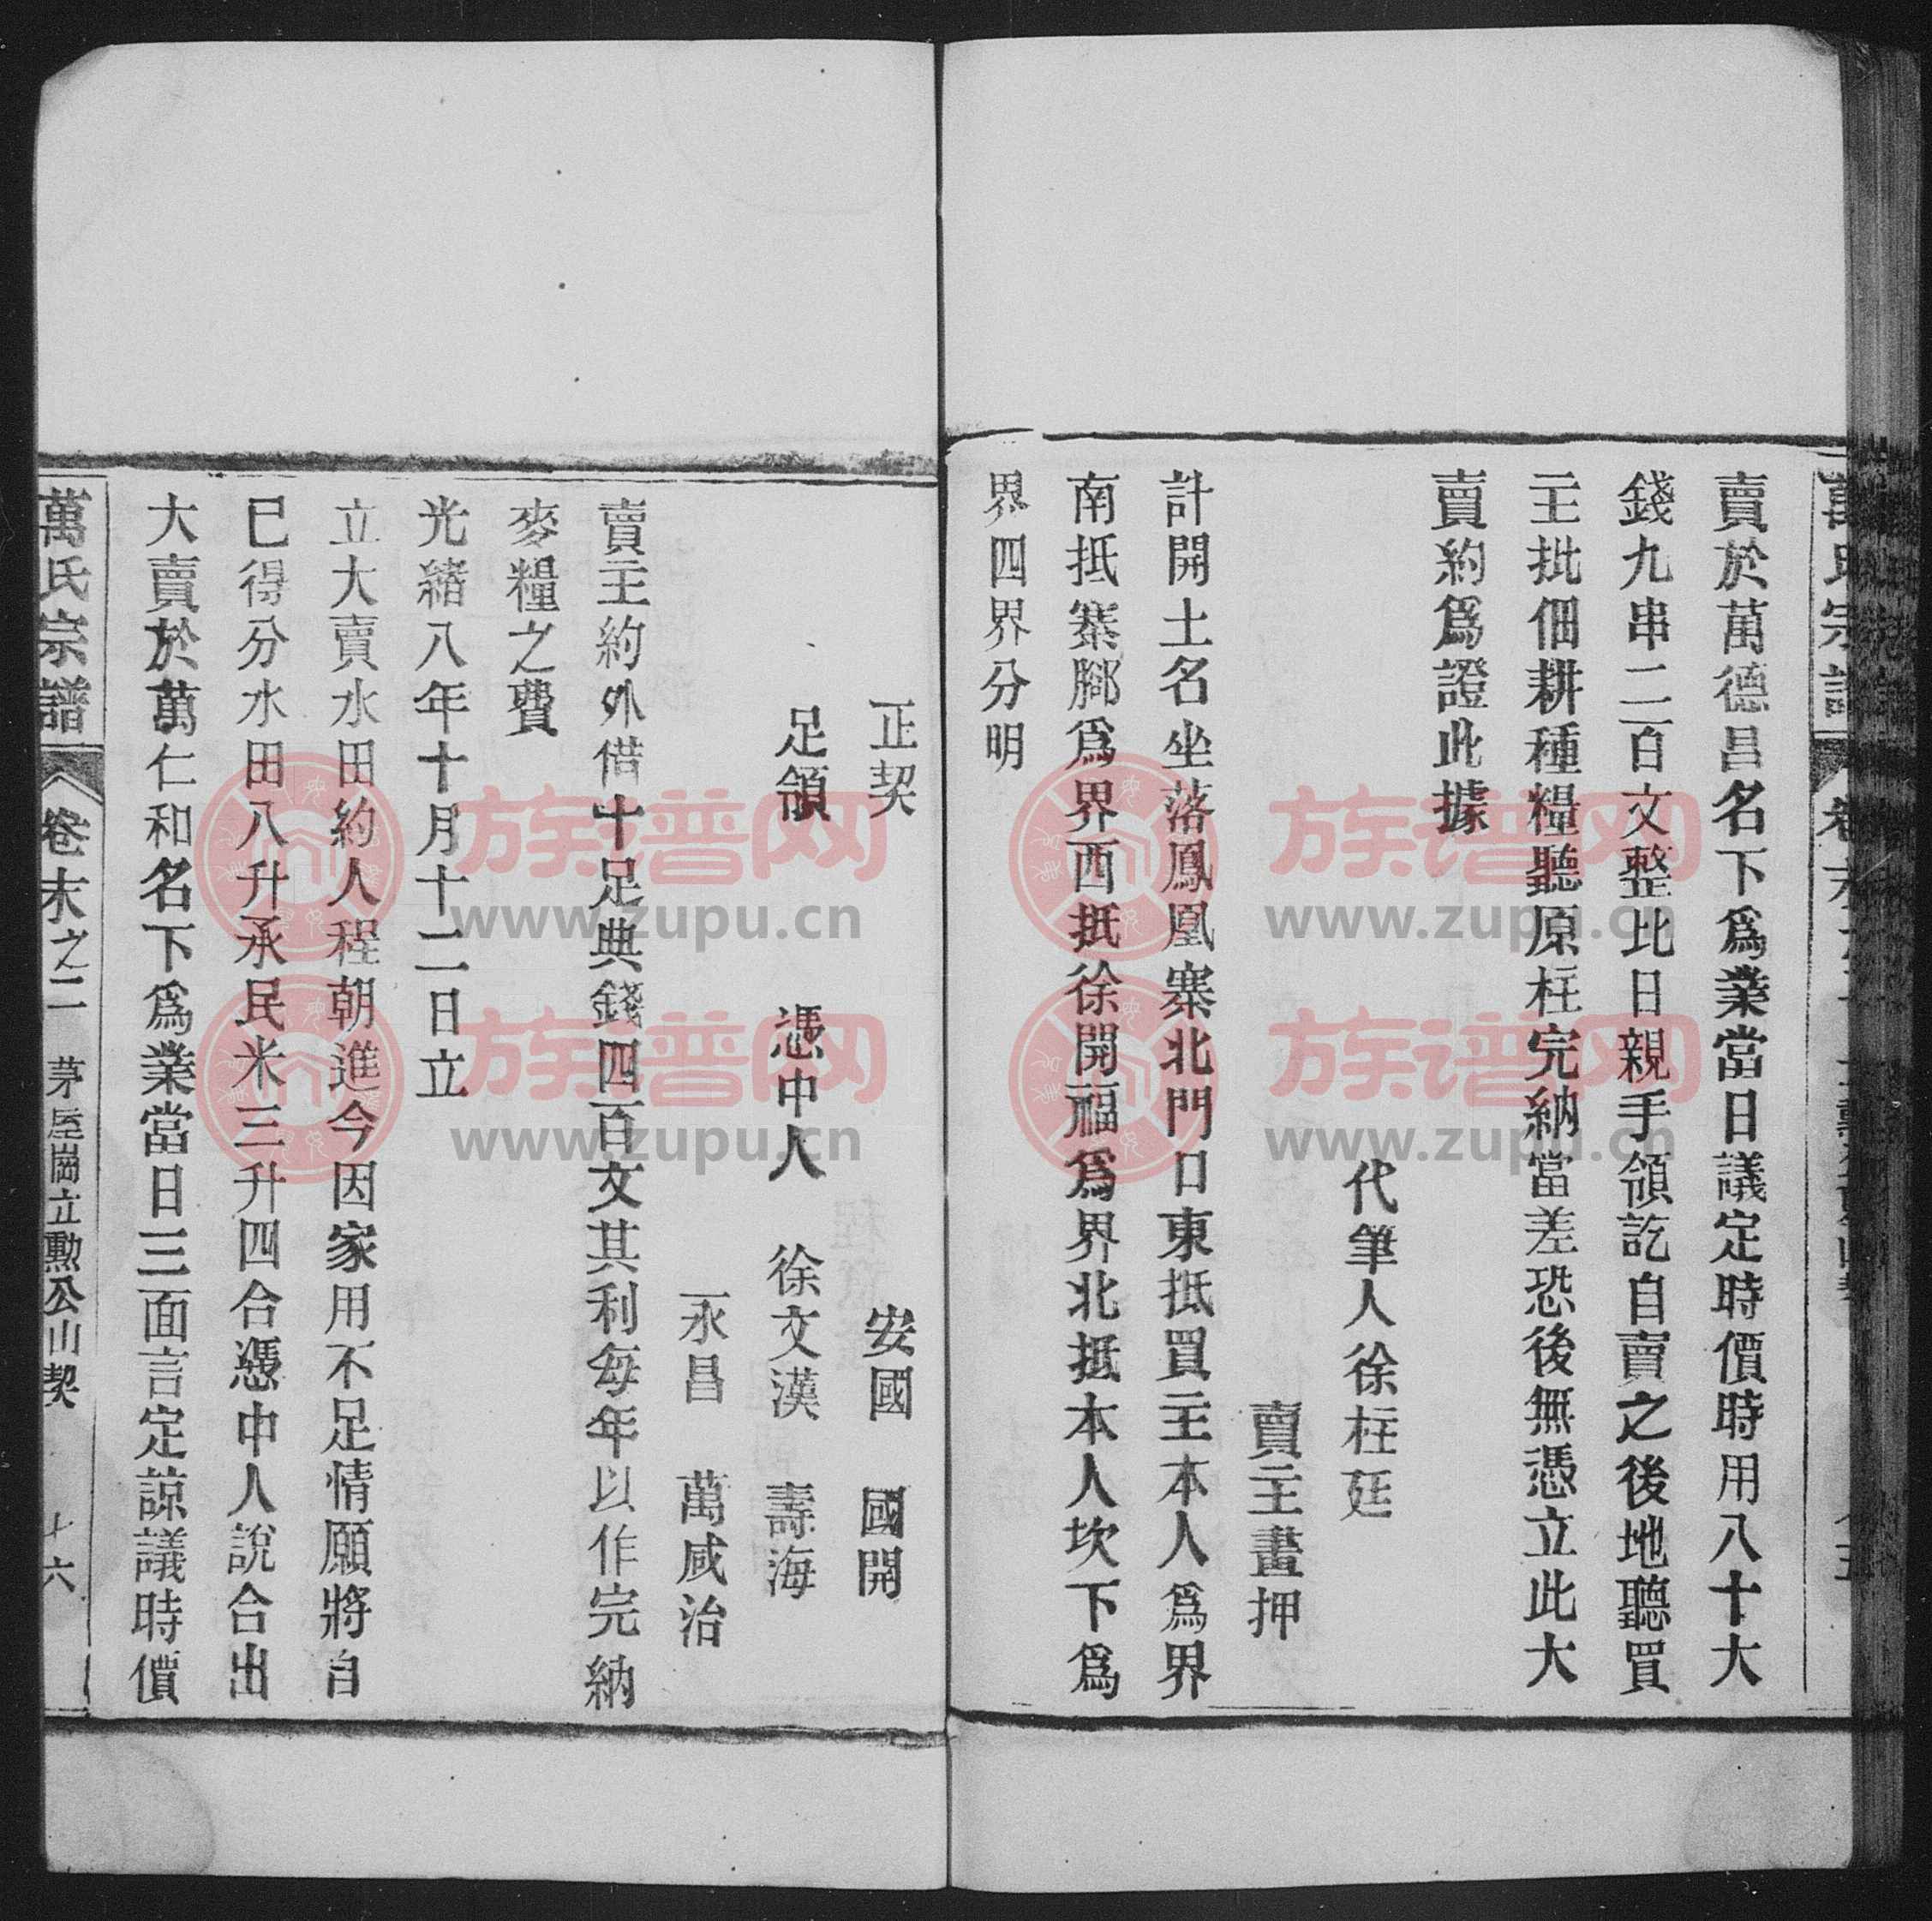 賣於萬德昌名下爲業當日議定時價時用八十大
錢九串二百文整比日親手領訖自賣之後地聽買
主批佃耕種糧聽原柱完納當差恐後無憑立此大
賣約爲證此據
代筆人徐柱廷
賣主畫押
計開土名坐落鳳凰寨北門口東抵買主本人爲界
南抵寨腳爲界西抵徐開福爲界北抵本人坎下爲
界四界分明
正契 安國 國開
足領 憑中人 徐文漢 壽海
永昌 萬咸治
賣主約外借十足典錢四百文其利每年以作完納
麥糧之費
光緒八年十月十二日立
立大賣水田約人程朝進今因家用不足情願將自
已得分水田八升承民米三升四合憑中人說合出
大賣於萬仁和名下爲業當日三面言定諒議時價
萬氏宗譜 卷末之二 茅屋崗立勲公山契 十六
族谱网
www.zupu.cn
族谱网
www.zupu.cn
族谱网
www.zupu.cn
族谱网
www.zupu.cn